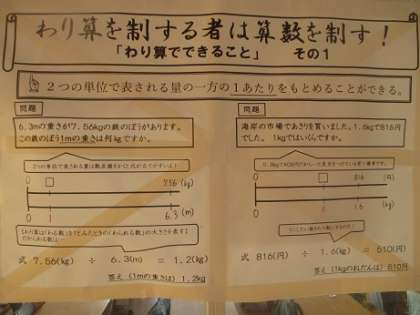 わり算を制する者は算数を制す！
「わり算でできること」 その１
２つの単位で表される量の一方の１あたりをもとめることができる。
問題
6.3mの重さが7.56kgの鉄のぼうがあります。
この鉄のぼう1mの重さは何kgですか。
0
□
7.56 (kg)
0
1
6.3 (m)
式 7.56(kg) ÷ 6.3(m) ＝ 1.2(kg)
答え (1mの重さは) 1.2kg
問題
海岸の市場であさりを買いました。1.6kgで816円
でした。 1kgではいくらですか。
0
□
816 (円)
0
1
1.6 (kg)
式 816(円) ÷ 1.6(kg) ＝ 510(円)
答え (1kgのねだんは) 510円